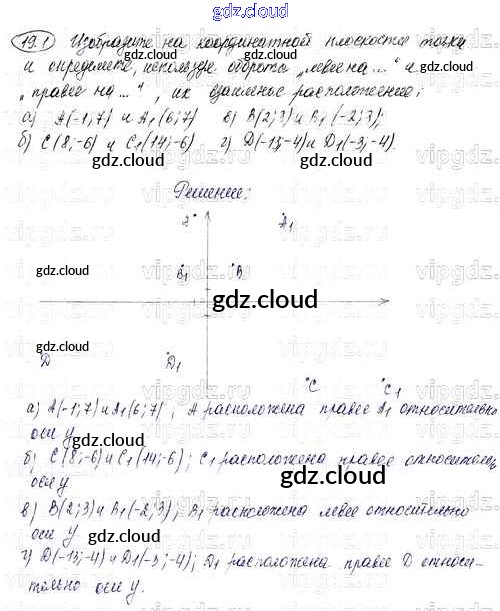 gdz.cloud
19.1 Изобразите на координатной плоскости точки
и определите, используя обороты „левее на...“ и
„правее на...“, их взаимное расположение:
а) A(-1; 7) и A1(6; 7) в) B(2; 3) и B1(-2; 3);
б) C(8; -6) и C1(14; -6) г) D(-13; -4) и D1(-3; -4).
gdz.cloud gdz.cloud
Решение:
A1
gdz.cloud B1 B
gdz.cloud
D D1
C C1
gdz.cloud
а) A(-1; 7) и A1(6; 7); A расположена правее A1 относительно
оси y.
б) C(8; -6) и C1(14; -6); C1 расположена правее относительно
оси y
gdz.cloud
в) B(2; 3) и B1(-2; 3); B1 расположена левее относительно
оси y
г) D(-13; -4) и D1(-3; -4); D1 расположена правее D относи-
тельно оси y.
gdz.cloud gdz.cloud